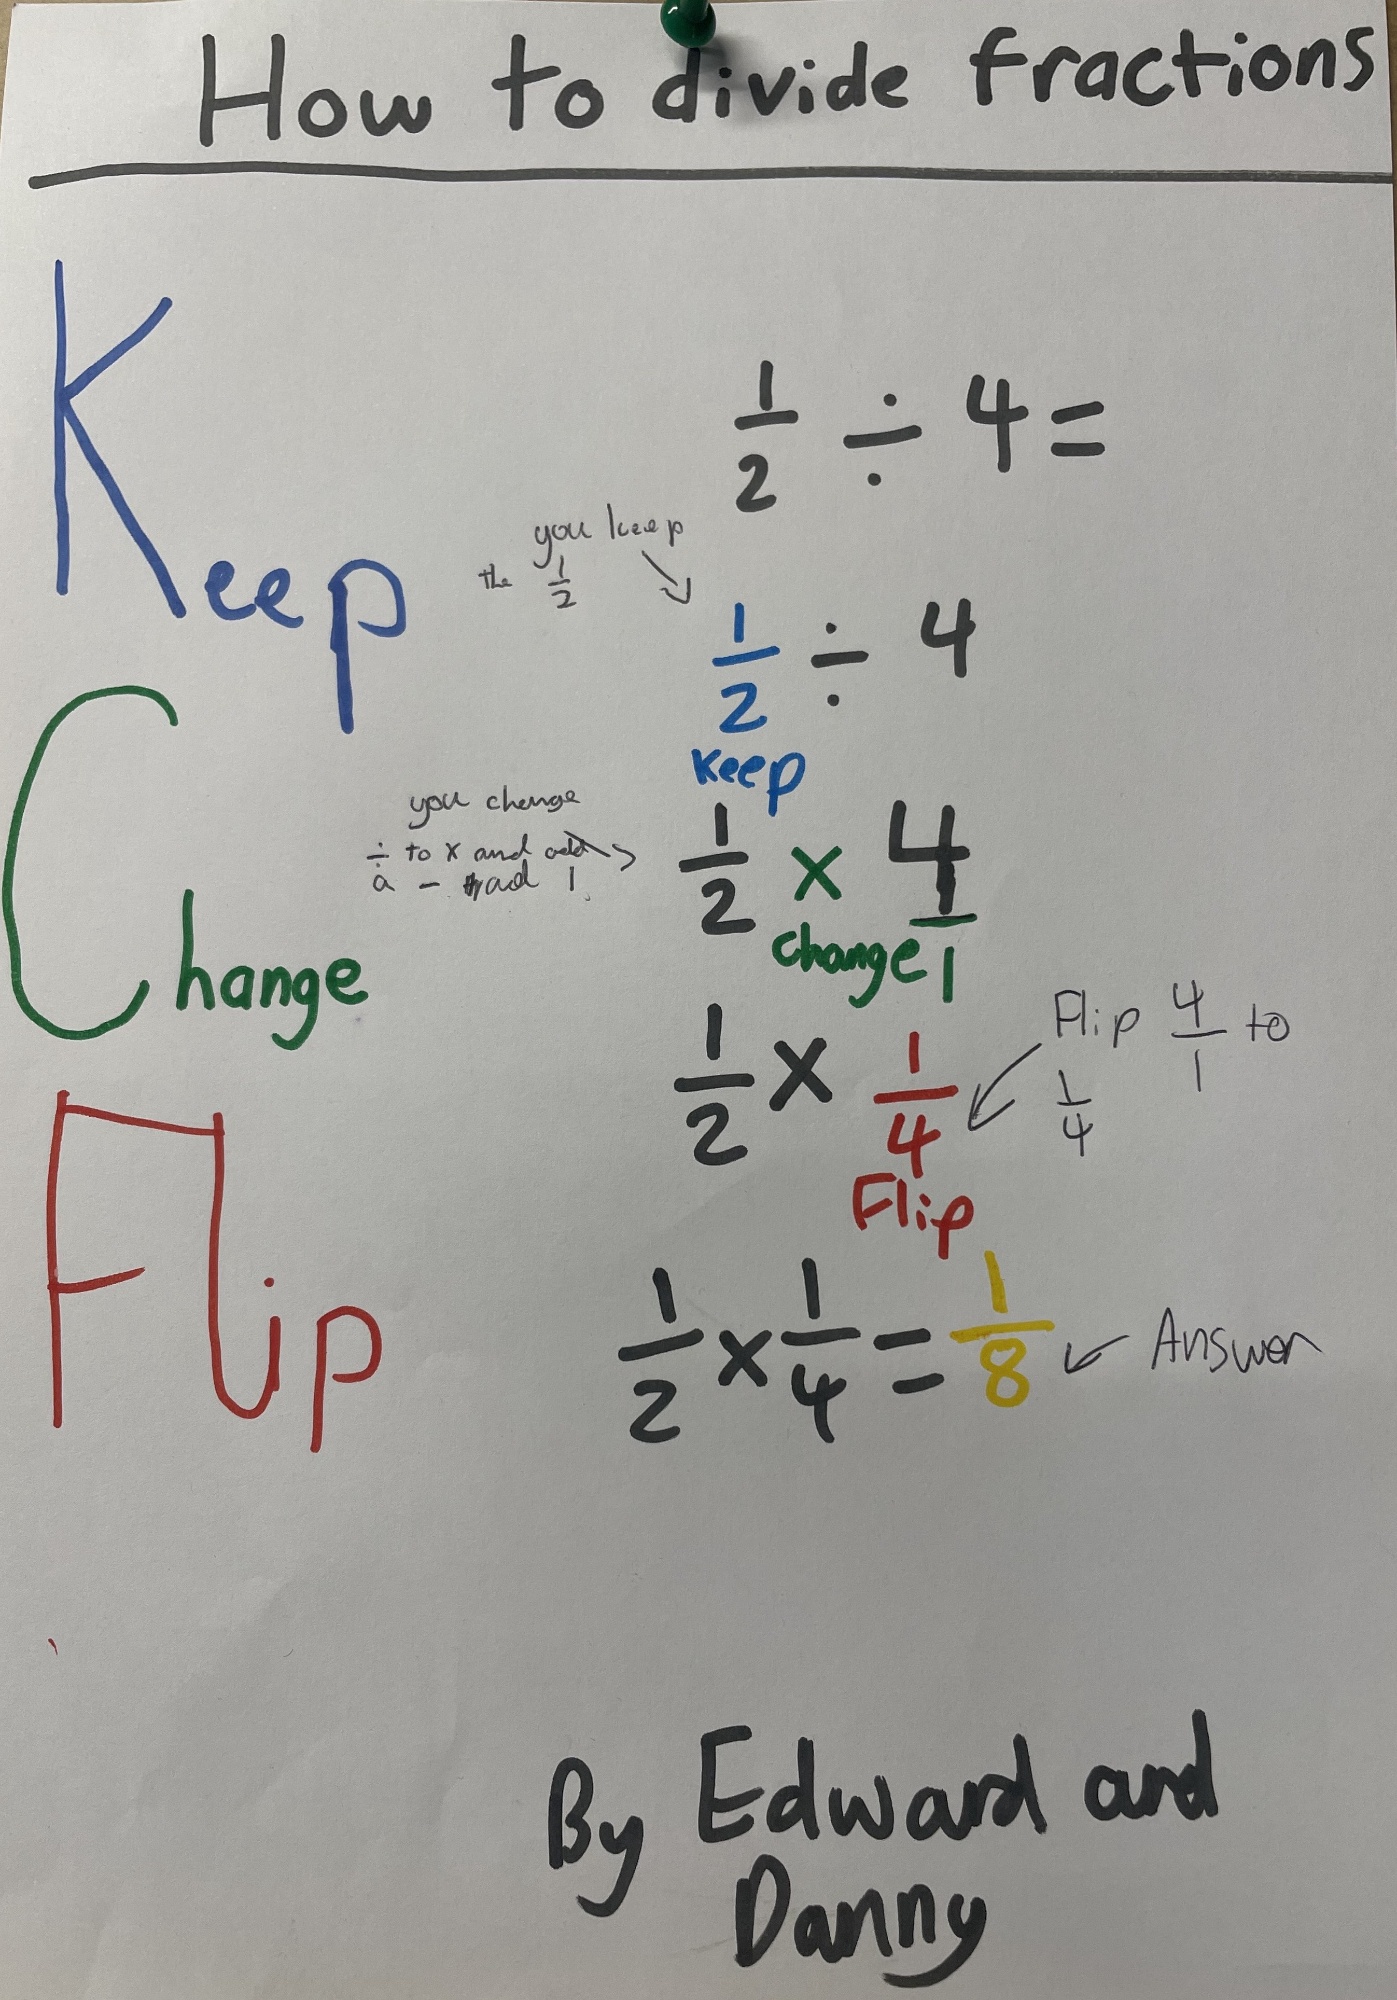 How to divide fractions
Keep
1/2 ÷ 4 =
you keep
the 1/2
1/2 ÷ 4
Keep
Change
you change
÷ to x and add
a - and 1.
1/2 x 4/1
Change
Flip
1/2 x 1/4
Flip
Flip 4/1 to
1/4
1/2 x 1/4 = 1/8
Answer
By Edward and
Danny